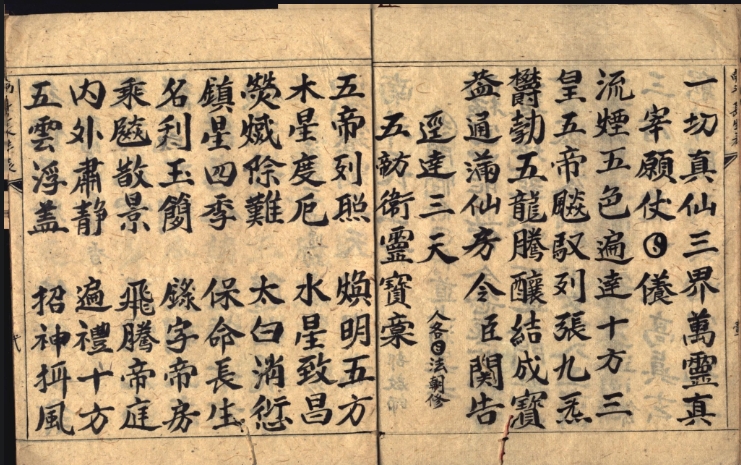 一切真仙三界萬靈真
宰願仗儀
流煙五色遍達十方三
皇五帝飈馭列張九炁
欝勃五龍騰釀結成寳
蓋通滿仙房令臣関告
逕達三天
人各法朝修
五訪衛靈寳章
五帝列照 煥明五方
木星度厄 水星致昌
熒惑除難 太白消愆
鎮星四季 保命長生
名列玉簡 錄字帝房
乘飈散景 飛騰帝庭
内外肅静 遍禮十方
五雲浮蓋 招神攝風